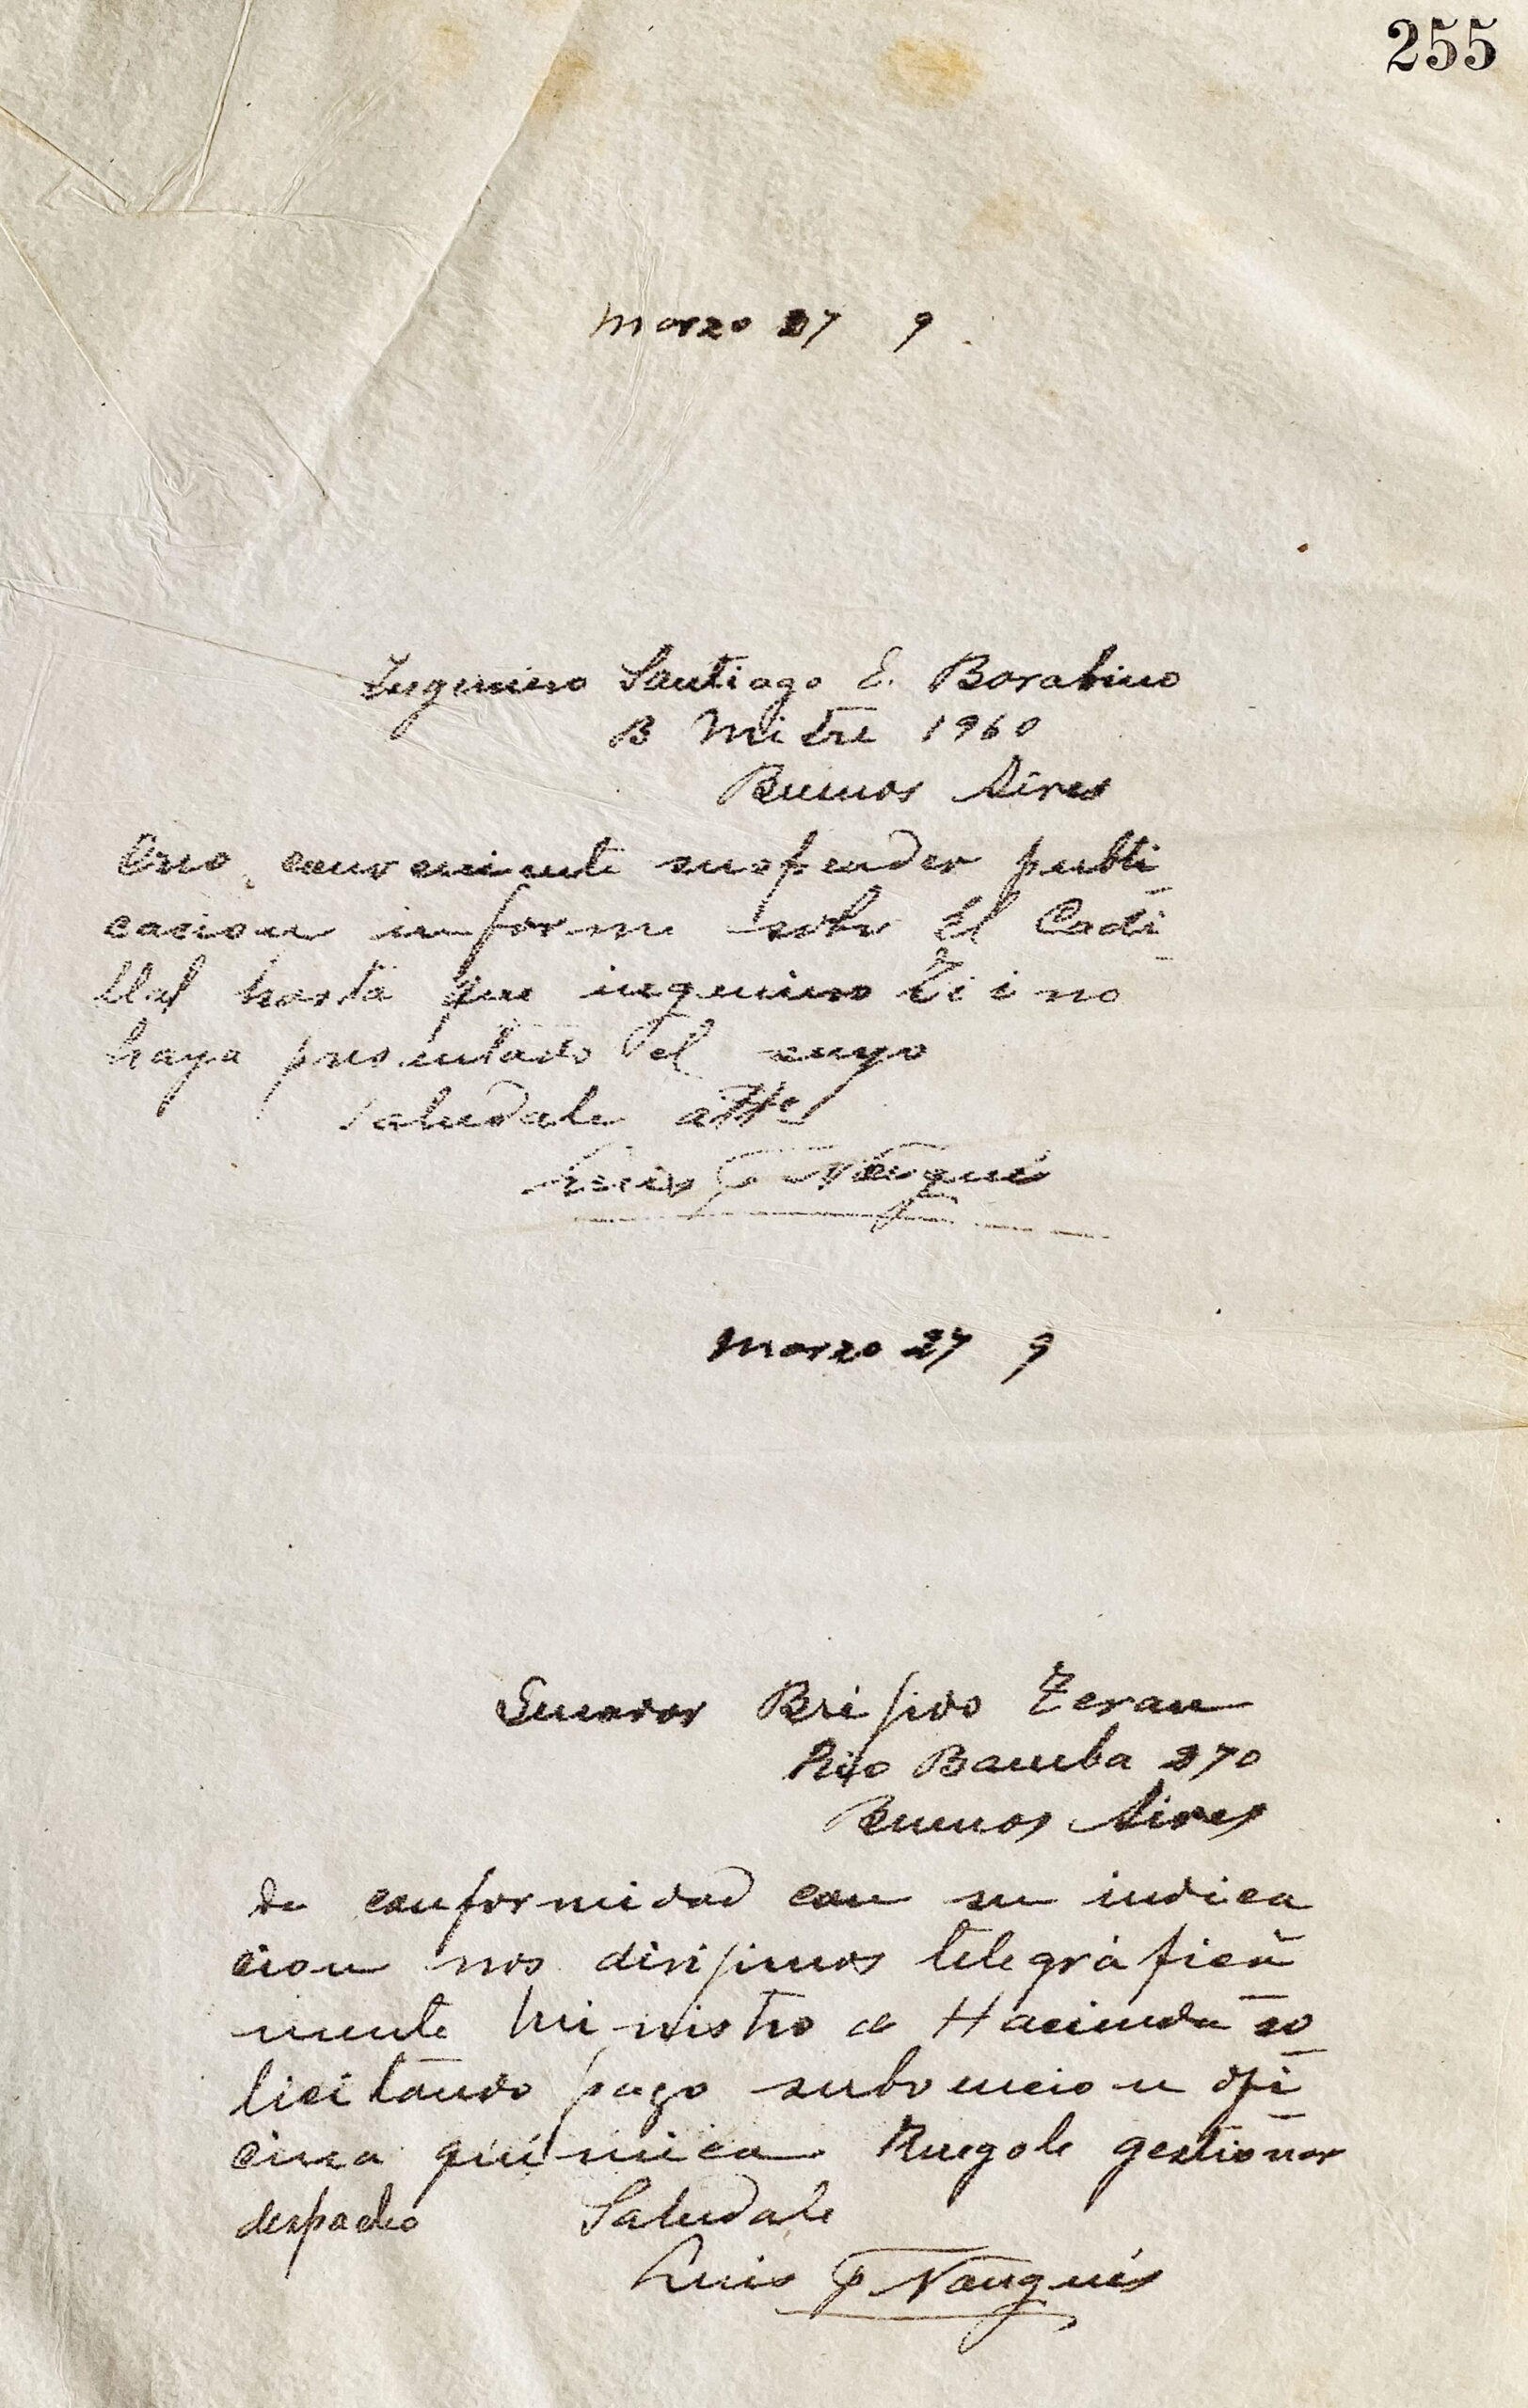 255
Marzo 27 9
Ingeniero Santiago E. Barabino
B Mitre 1960
Buenos Aires
Creo conveniente suspender publi
cacion informe sobre El Cadi
llal hasta que ingeniero
haya presentado el cuyo
Saludale atte
Luis F Nougués
Marzo 27 9
Senador Brijido Teran
Rio Bamba 270
Buenos Aires
De conformidad con su indica
cion nos dirijimos telegráfica
mente Ministro de Hacienda so
licitando pago subvencion ofi
cina química Ruegole gestionar
despacho Saludale
Luis F Nougués